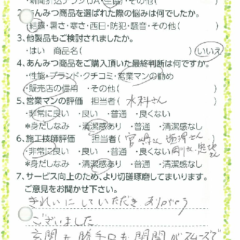 2.あんみつ商品を選ばれた際の悩みは何でしたか。
・暑さ・寒さ・西日・防犯・騒音・その他(
3.他製品もご検討されましたか。
・はい 商品名( )・いいえ
4.あんみつ商品をご購入頂いた最終判断は何ですか。
・性能・ブランド・クチコミ・営業マンの勧め
・販売店の信用・その他( )
5.営業マンの評価 担当者( さん )
・非常に良い ・良い ・普通 ・良くない
*身だしなみ ・清潔感あり ・普通 ・清潔感なし
6.施工技師評価 担当者( 宮崎さん
・非常に良い ・良い ・普通 ・良くない
*身だしなみ ・清潔感あり ・普通 ・清潔感なし
7.サービス向上のため、より切磋琢磨してまいります。
ご意見をお聞かせ下さい。
きれいにしていただき ありがとう
ございました
玄関も 勝手口も 開閉がスムーズで